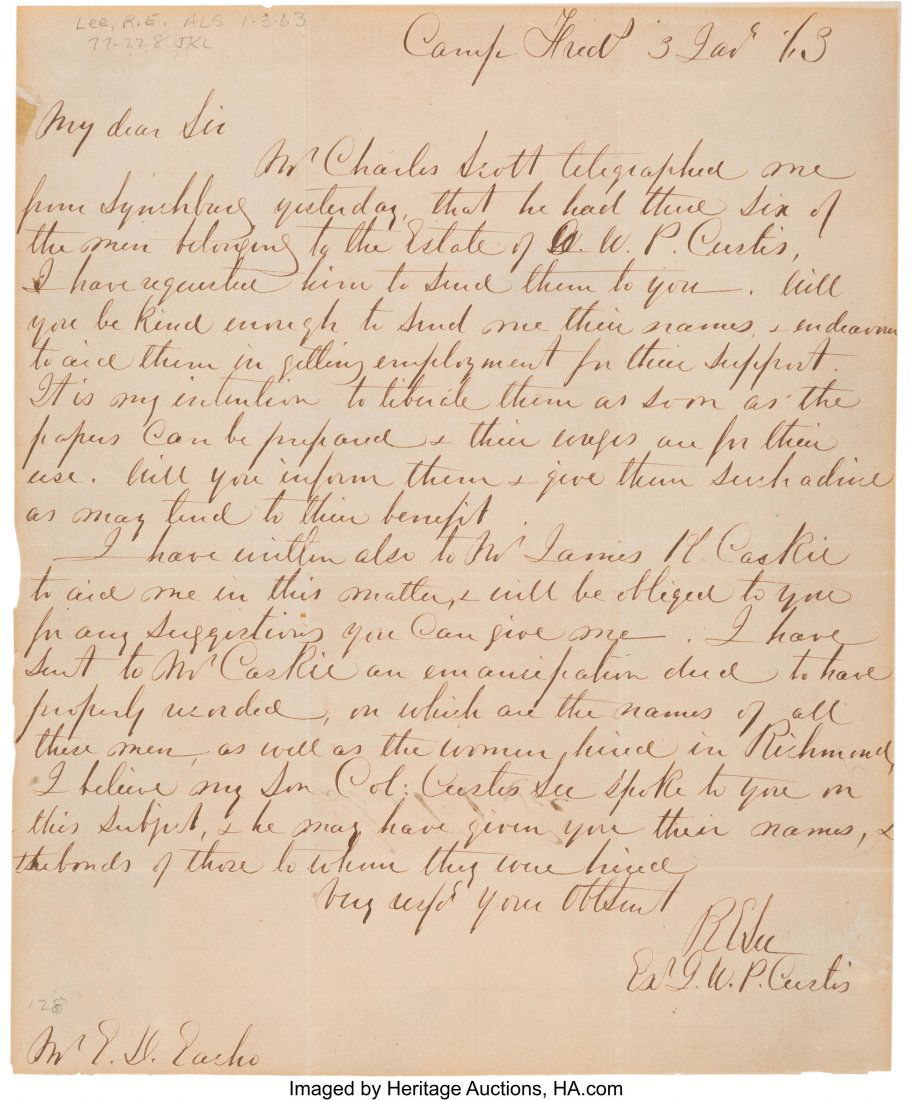 Lee, R.E. ALS 1-3-63
77-228 JKL
Camp Fred^g 3 Jan^y '63
My dear Sir
M^r Charles Scott telegraphed me
from Lynchburg yesterday, that he had there six of
the men belonging to the Estate of G. W. P. Custis,
I have requested him to send them to you. Will
you be kind enough to send me their names, & endeavour
to aid them in getting employment for their support.
It is my intention to liberate them as soon as the
papers can be prepared & their wages are for their
use. Will you inform them & give them such advice
as may tend to their benefit
I have written also to M^r James K. Caskie
to aid me in this matter, & will be obliged to you
for any suggestions you can give me. I have
sent to M^r Caskie an emancipation deed to have
properly recorded, on which are the names of all
these men, as well as the women hired in Richmond,
I believe my Son Col: Custis Lee spoke to you on
this subject, & he may have given you their names, &
the bonds of those to whom they were hired
Very resp^y Your Obt Servt
R E Lee
Ex^r G. W. P. Custis
128
M^r E. D. Eacho
Imaged by Heritage Auctions, HA.com